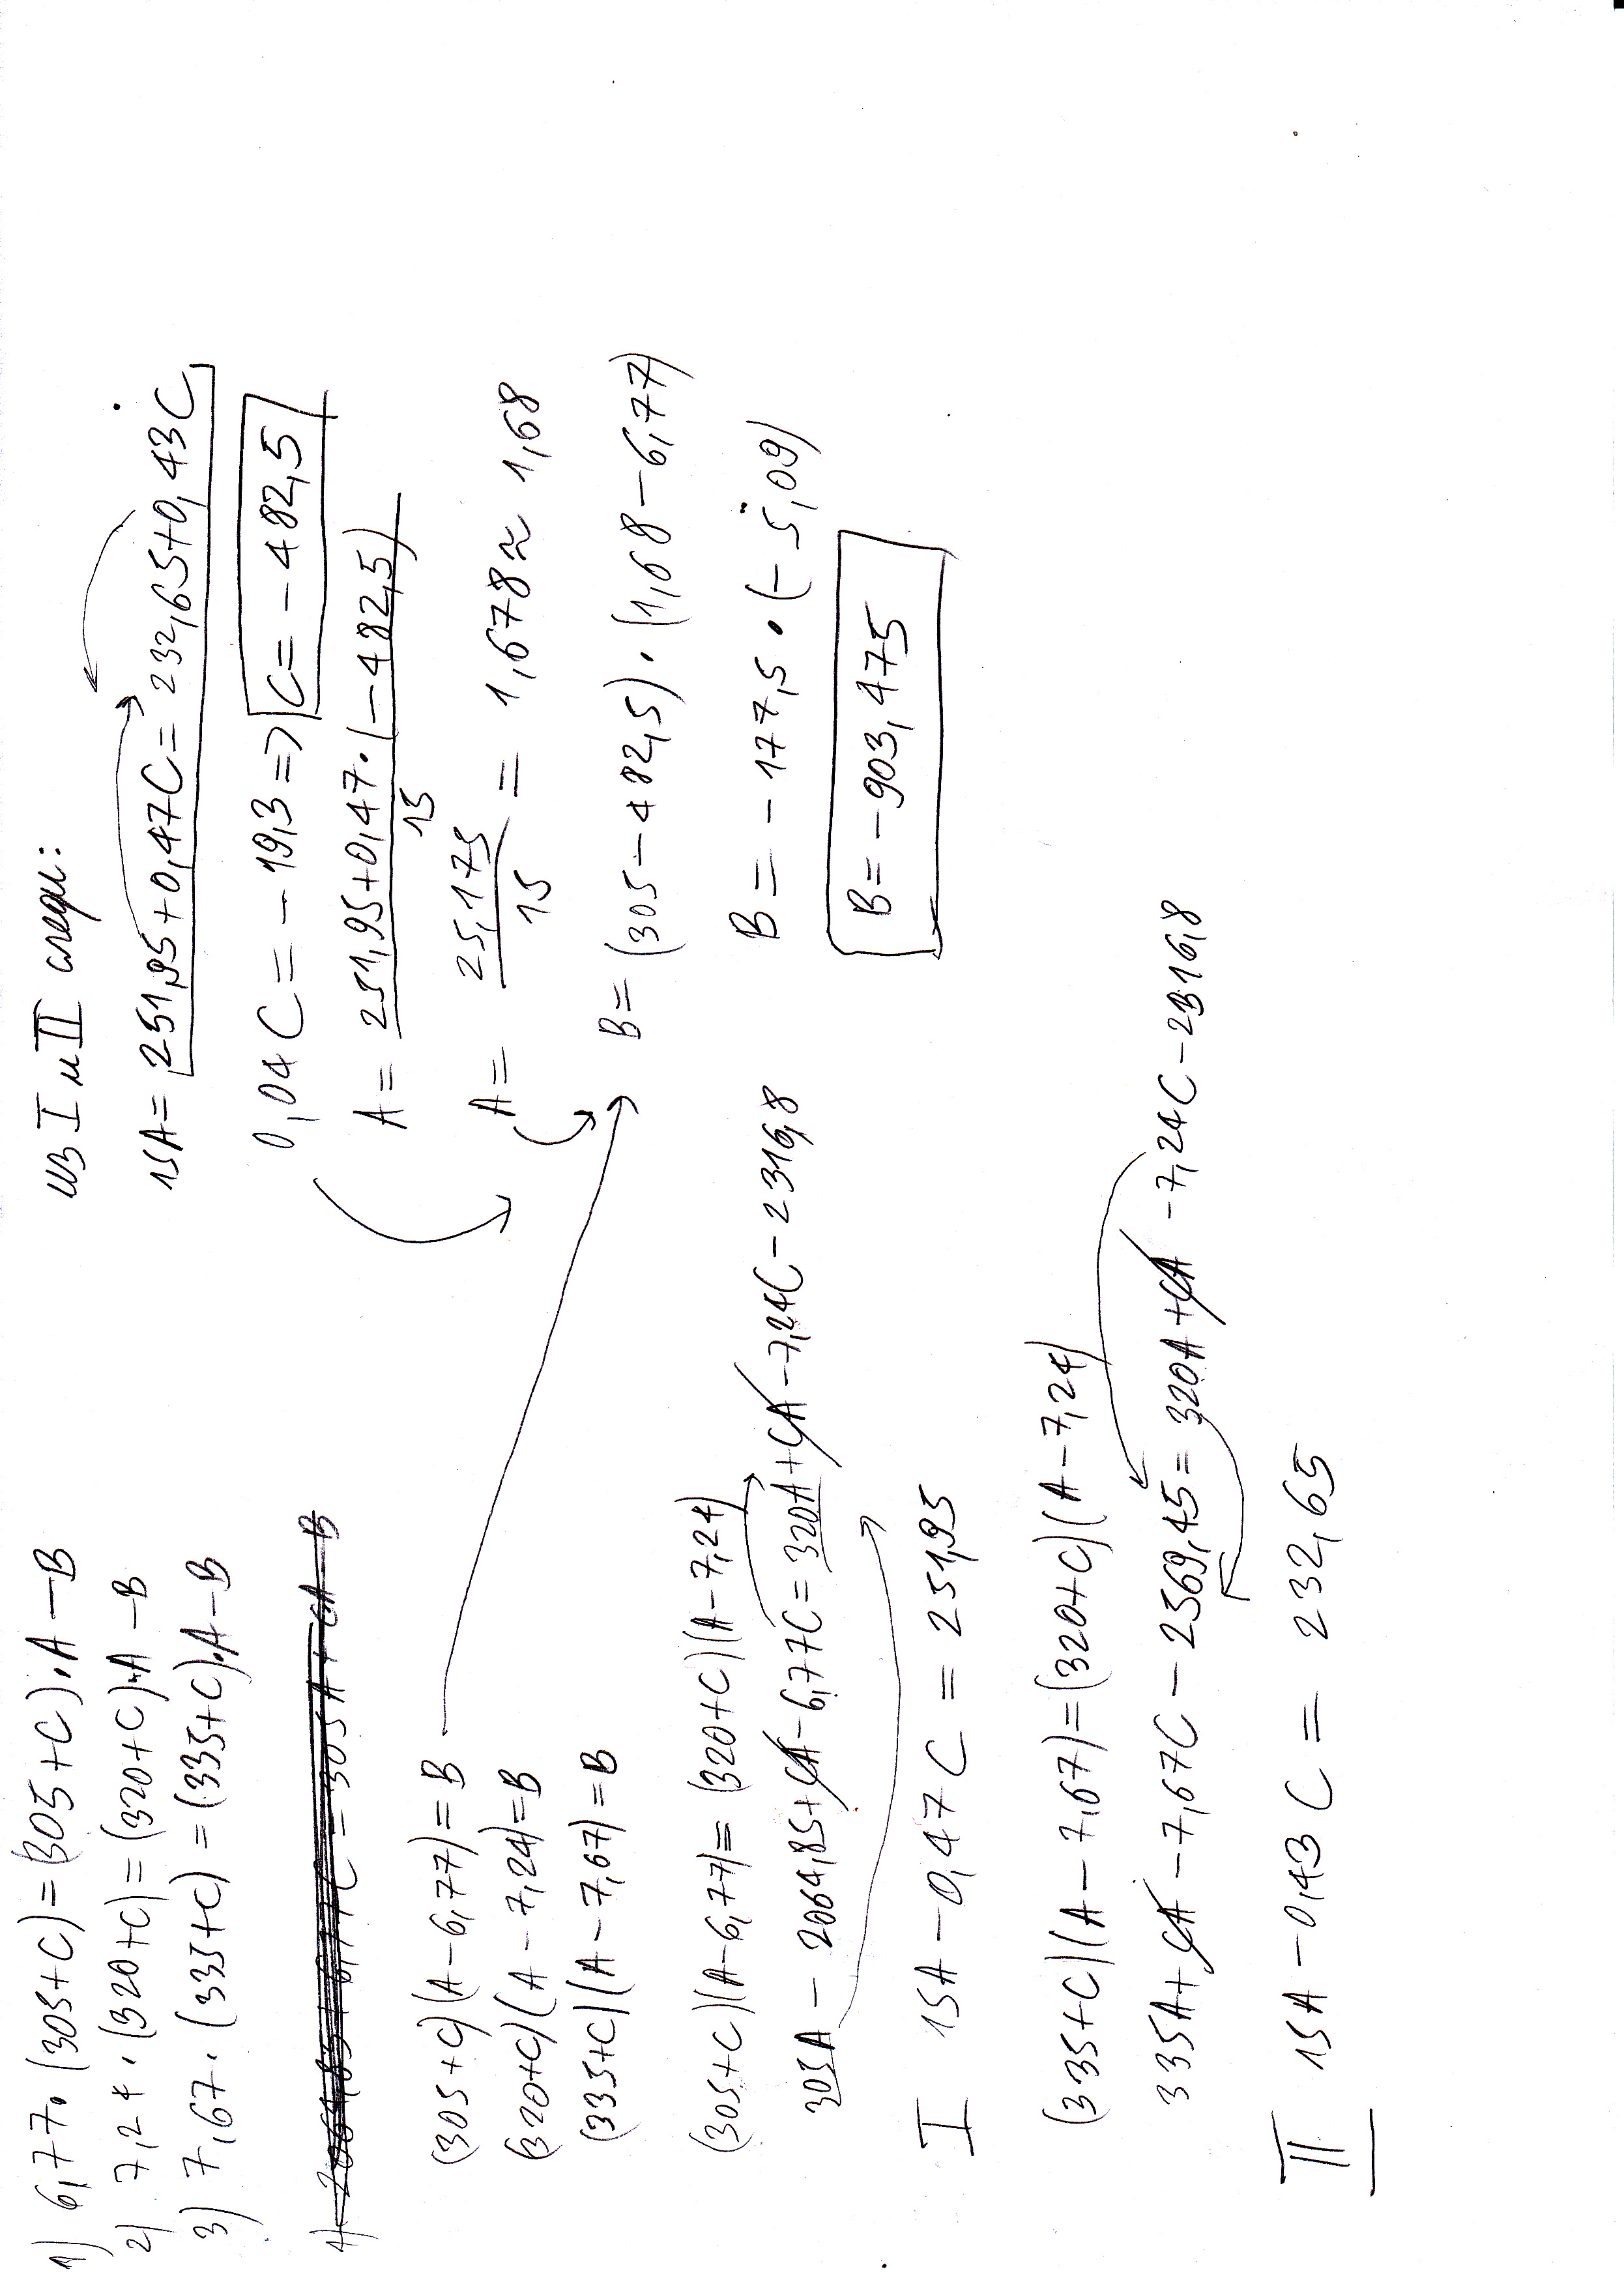 1) 6,77·(305+C)=(305+C)·A-B
2) 7,24·(320+C)=(320+C)·A-B
3) 7,67·(335+C)=(335+C)·A-B
(305+C)(A-6,77)=B
(320+C)(A-7,24)=B
(335+C)(A-7,67)=B
(305+C)(A-6,77)=(320+C)(A-7,24)
305A-2064,85+CA-6,77C=320A+CA-7,24C-2316,8
I 15A-0,47C=251,95
(335+C)(A-7,67)=(320+C)(A-7,24)
335A+CA-7,67C-2569,45=320A+CA-7,24C-2316,8
II 15A-0,43C=232,65
из I и II следи:
15A=251,95+0,47C=232,65+0,43C
0,04C=-19,3=> C=-482,5
A=251,95+0,47·(-482,5)
15
A=25,175
15
=1,678≈1,68
B=(305-482,5)·(1,68-6,77)
B=-177,5·(-5,09)
B=-903,475